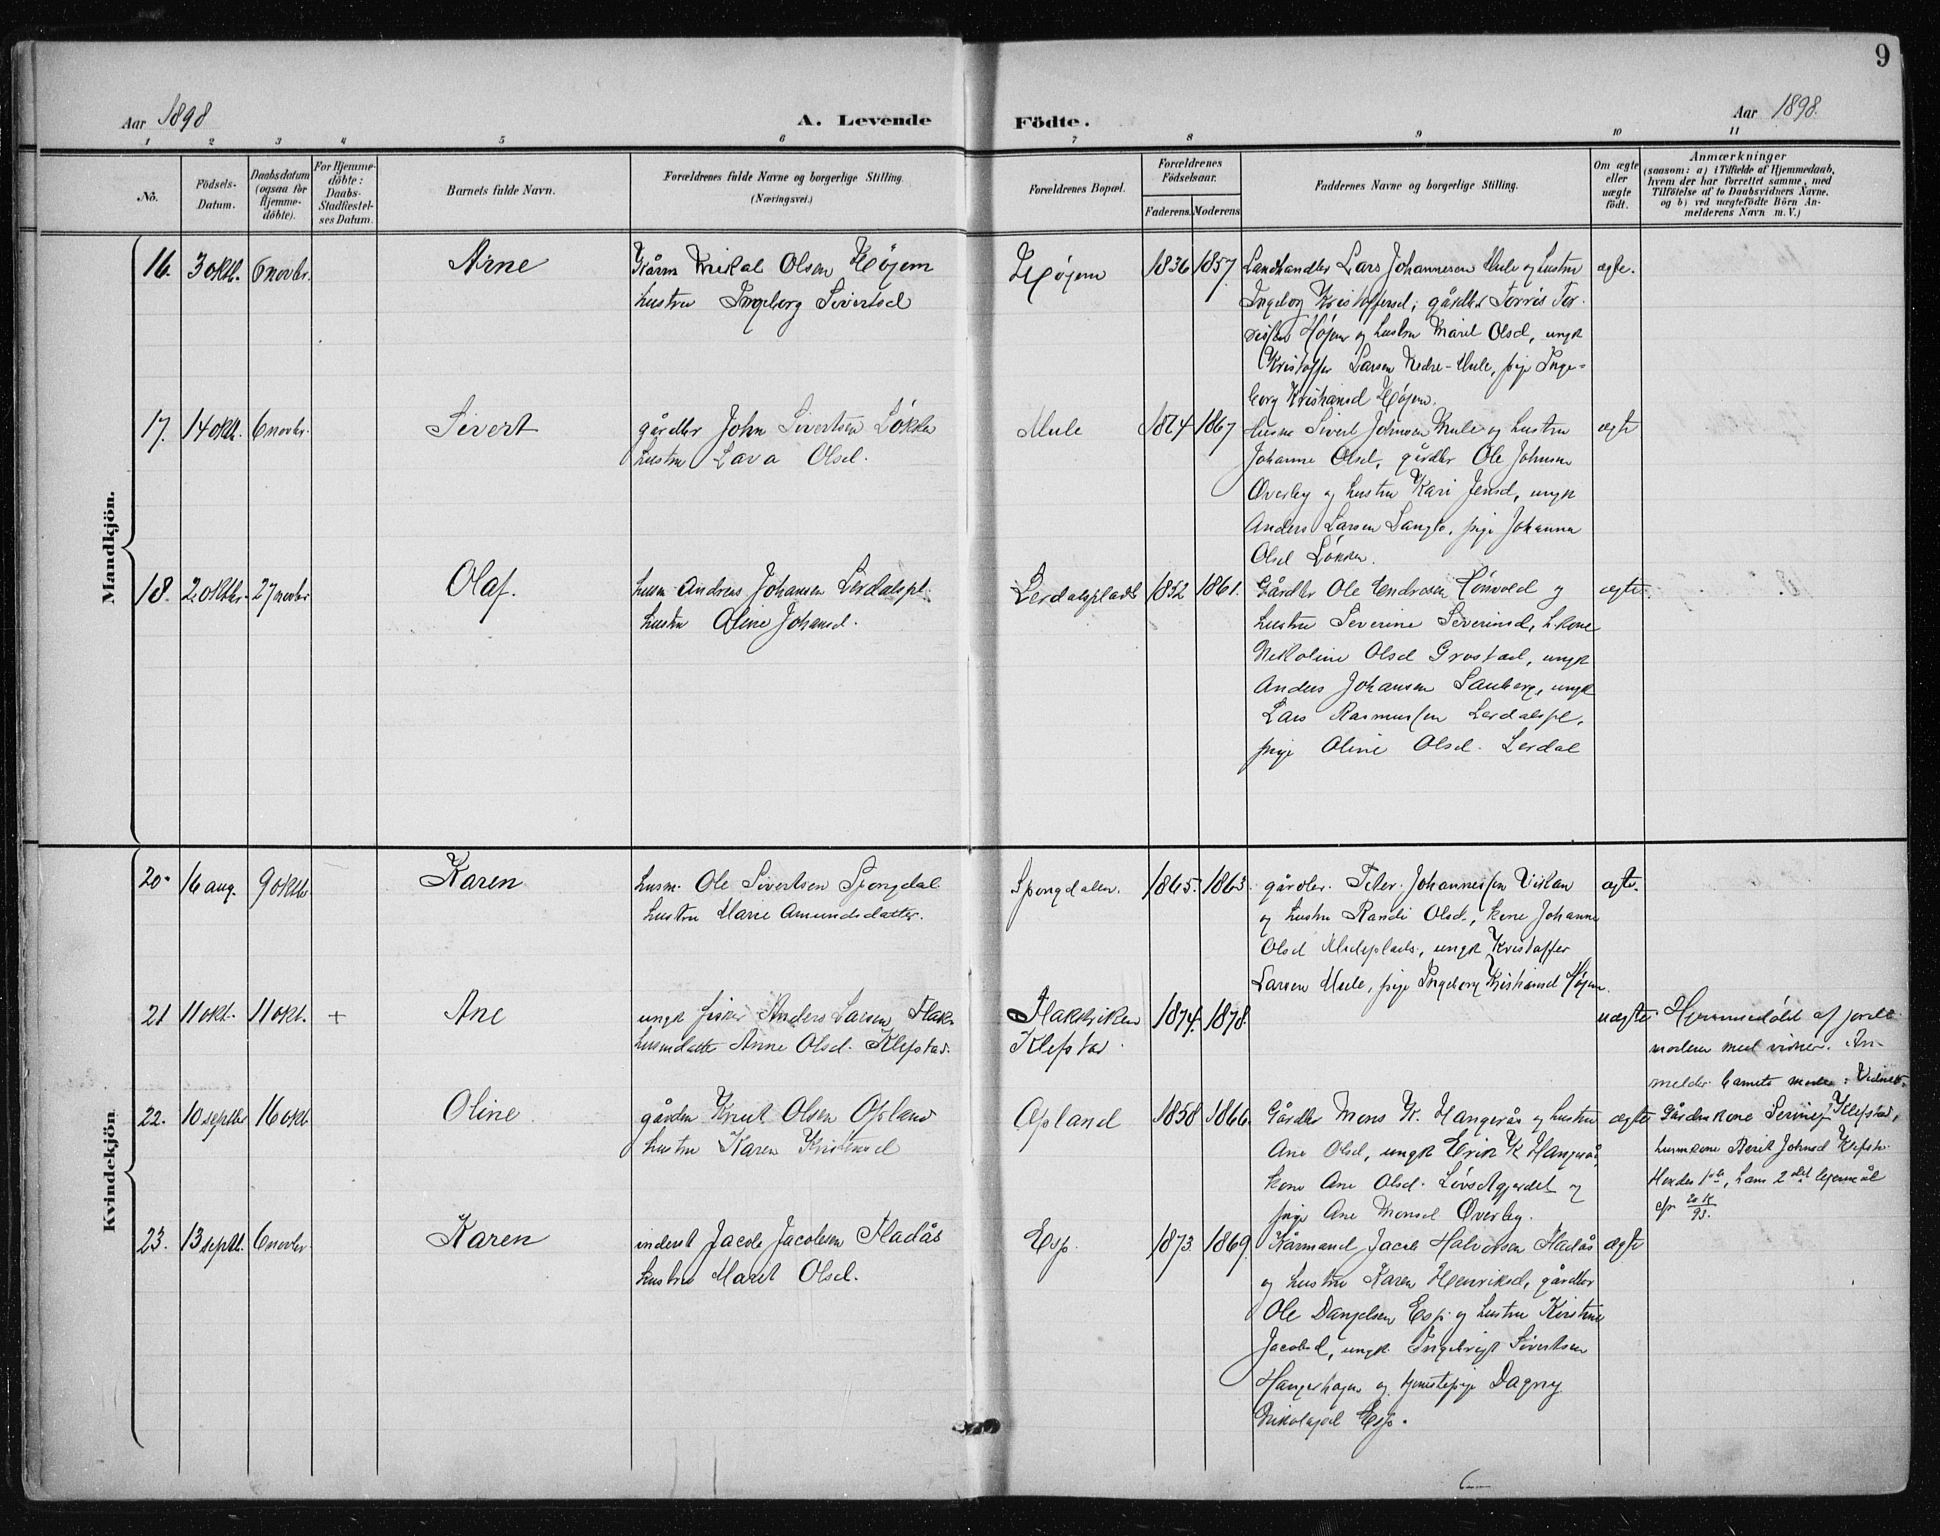 9
Aar 1898
A. Levende
Födte.
Aar 1898.
1 2 3 4 5 6 7 8 9 10 11
No.
Födsels-
Datum.
Daabsdatum
(ogsaa for
Hjemme-
döbte).
For Hjemme-
döbte:
Daabs-
Stadfæstel-
ses Datum.
Barnets fulde Navn.
Forældrenes fulde Navne og borgerlige Stilling.
(Næringsvei.)
Forældrenes Bopæl.
Forældrenes
Födselsaar.
Faderens. Moderens.
Faddernes Navne og borgerlige Stilling.
Om ægte
eller
uægte
födt.
Anmærkninger
(saasom: a) i Tilfælde af Hjemmedaab,
hvem der har forrettet samme, med
Tilföielse af to Daabsvidners Navne,
og b) ved uægtefödte Börn An-
melderens Navn m. V.)
Mandkjön.
16. 3 oktb. 6 novbr. Arne
Kårm Mikal Olsen Højem
hustru Ingeborg Sivertsd
Højem 1836 1857
Landhandler Lars Johannesen Mule og hustru
Ingeborg Kristoffersd; gårdbr Torris Tor-
risen Højem og hustru Marit Olsd, ungk
Kristoffer Larsen Nedre-Mule, pige Inge-
borg Kristiansd Højem.
ægte.
17. 14 oktb. 6 novbr. Sivert
gårdbr John Sivertsen Løkken
hustru Lava Olsd.
Mule 1867
Husm Sivert Johnsen Mule og hustru
Johanna Olsd, gårdbr Ole Johnsen
Øverby og hustru Kari Jensd, ungk
Anders Larsen Langlo, pige Johanna
Olsd Løkken.
ægte
18. 2 oktbr. 27 novbr Olaf.
husm Andreas Johansen Lerdalspl.
hustru Oline Johansd.
Lerdalsplads 1852 1861.
Gårdbr Ole Endresen Tønvold og
hustru Severine Severinsd, h. kone
Nikoline Olsd Grostad, ungk
Anders Johansen Sauberg, ungk
Lars Rasmussen Lerdalspl,
pige Oline Olsd. Lerdal
ægte.
Kvindekjön.
20. 16 aug. 9 oktbr Karen
husm. Ole Sivertsen Spongdal
hustru Marie Amundsdatter.
Spongdalen. 1865. 1863.
gårdbr. Peter Johannessen Viskan
og hustru Randi Olsd., kone Johanna
Olsd Muleplads, ungk Kristoffer
Larsen Mule, pige Ingeborg Kristiansd Højem.
ægte.
21 11 okt. 11 okt. + Ane
ungk fisker Anders Larsen Flak.
husmdatter Anne Olsd. Klefstad.
Flakkviken
Klefstad.
1874. 1878.
uægte
Hjemmedøbt af jorde-
moderen med vidner. An-
melder barnets moder. Vidner:
Gårdmkone Klefstad,
husmkone Berit Johnsd Klefst.
Hendes 1ste, hans 2det lejermål
22. 10 septbr 16 okt. Oline
gårdm Knut Olsen Opland
hustru Karen Kristensd
Opland 1858 1866.
Gårdbr Mons K. Hangerås og hustru
Ane Olsd, ungk Erik K Hangerås,
kone Ane Olsd. Løvsetgjerdet og
pige Ane Monsd Øverby.
ægte
23. 13 septb. 6 novbr Karen
inderst Jacob Jacobsen Fladås
hustru Marit Olsd.
Esp. 1873 1869.
Kårmand Jacob Halvorsen Fladås
og hustru Karen Henriksd, gårdbr
Ole Danjelsen Esp og hustru Kirstine
Jacobsd, ungk. Ingebrigt Sivertsen
Hangerhagen og tjenestepige Dagny
Nikolajsd Esp.
ægte